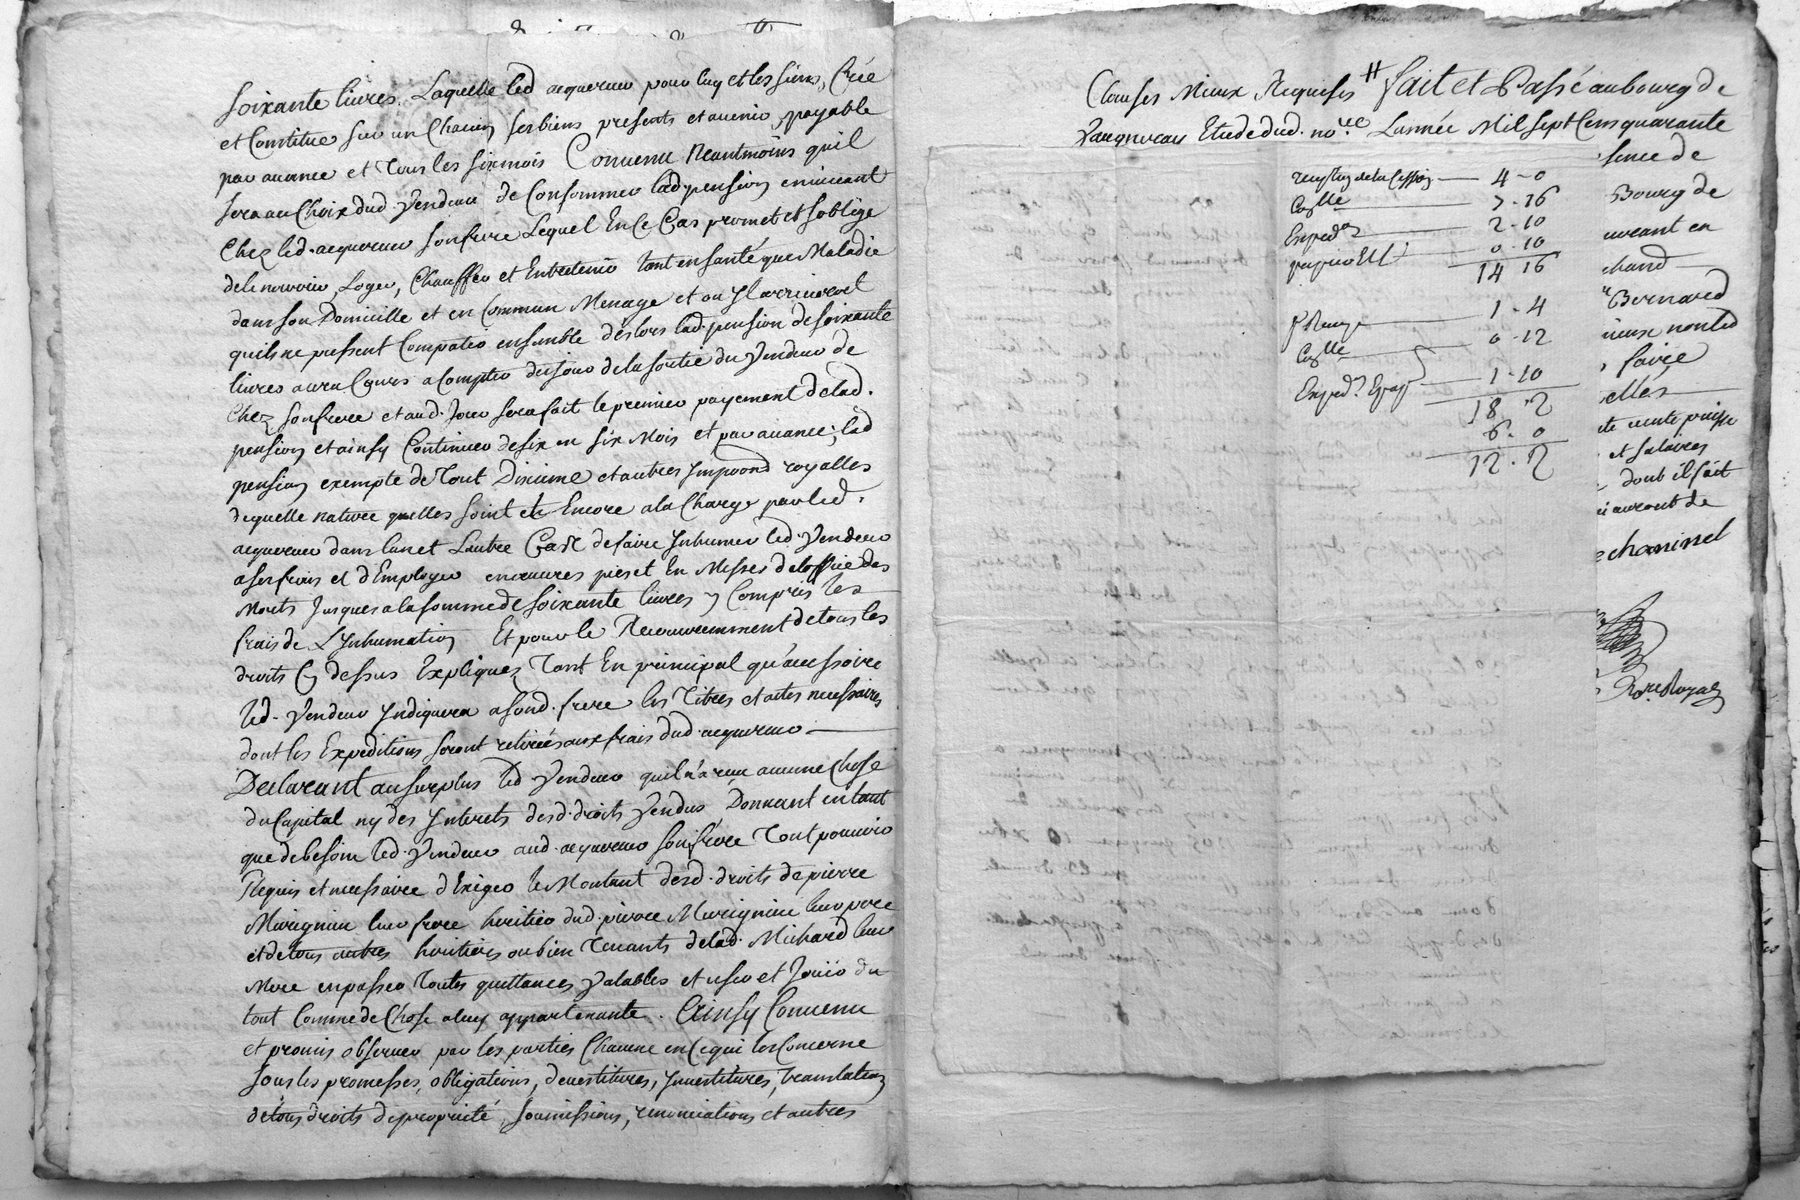 soixante livres. Laquelle led acquereur pour luy et les siens, Crée
et Constitue sur un Chacun ses biens presents et avenir, payable
par avance et tous les six mois Convenu Neantmoins quil
sera au Choix dud. Vendeur de Consommer lad. pension en vivant
Chez led. acquereur son frere Lequel En Ce Cas promet et soblige
de le nourrir, Loger, Chauffer et Entretenir tant en santé que Maladie
dans son Domicille et en Commun Menage et ou Il arriveroit
quils ne pussent Compatir ensemble des lors lad. pension de soixante
livres aura Cours a Compter du jour de la sortie du Vendeur de
Chez son frere et aud. Jour sera fait le premier payement de lad.
pension et ainsy Continuer de six en six Mois et par avance; lad
pension exempte de Tout Dixieme et autres Impoons royalles
de quelle nature quelles soint et Encore a la Charge par led.
acquereur dans lun et Lautre Cas de faire Inhumer led. Vendeur
a ses frais et d'Employer en œuvres pies et En Messes de loffice des
Morts Jusques a la somme de soixante livres y Compris les
frais de L'Inhumation Et pour le Recouvremment de tous les
droits Cy dessus Expliqués Tant En principal qu'accessoire
led. Vendeur Indiquera a sond. frere les Titres et actes necessaires
dont les Expeditions seront retirées aux frais dud. acquereur
Declarant au surplus led Vendeur quil n'a reçu aucune Chose
du Capital ny des Interets desd. droits Vendus Donnant en tant
que de besoin led. Vendeur aud. acquereur son frere Tout pouvoir
Requis et necessaire d'Exiger le Montant desd. droits de pierre
Murigneu leur frere heritier dud. pierre Murigneu leur pere
et de tous autres heritiers ou bien Tenants de lad. Michard leur
Mere en passer Toutes quittances Valables et user et Jouir du
tout Comme de Chose a luy appartenante. Ainsy Convenu
et promis observer par les parties Chacune en Ce qui les Concerne
sous les promesses, obligations, devestitures, Investitures, translation
de tous droits de propriété, soumissions, renonciations et autres
Clauses Mieux Requises # fait et Passé au bourg de
Vaugneray Etude dud. nore. Lannée Mil sept Cens quarante
sence de
4 - 0
Bourg de
2 - 10
uveant en
0 - 10
chand
14 16
Bernard
1 - 4
0 - 12
faire
1 - 10
elles
18 . 2
te vente puisse
6 . 0
et salaires
12 . 2
dont il fait
auront de
chaninel
Nore. Royal